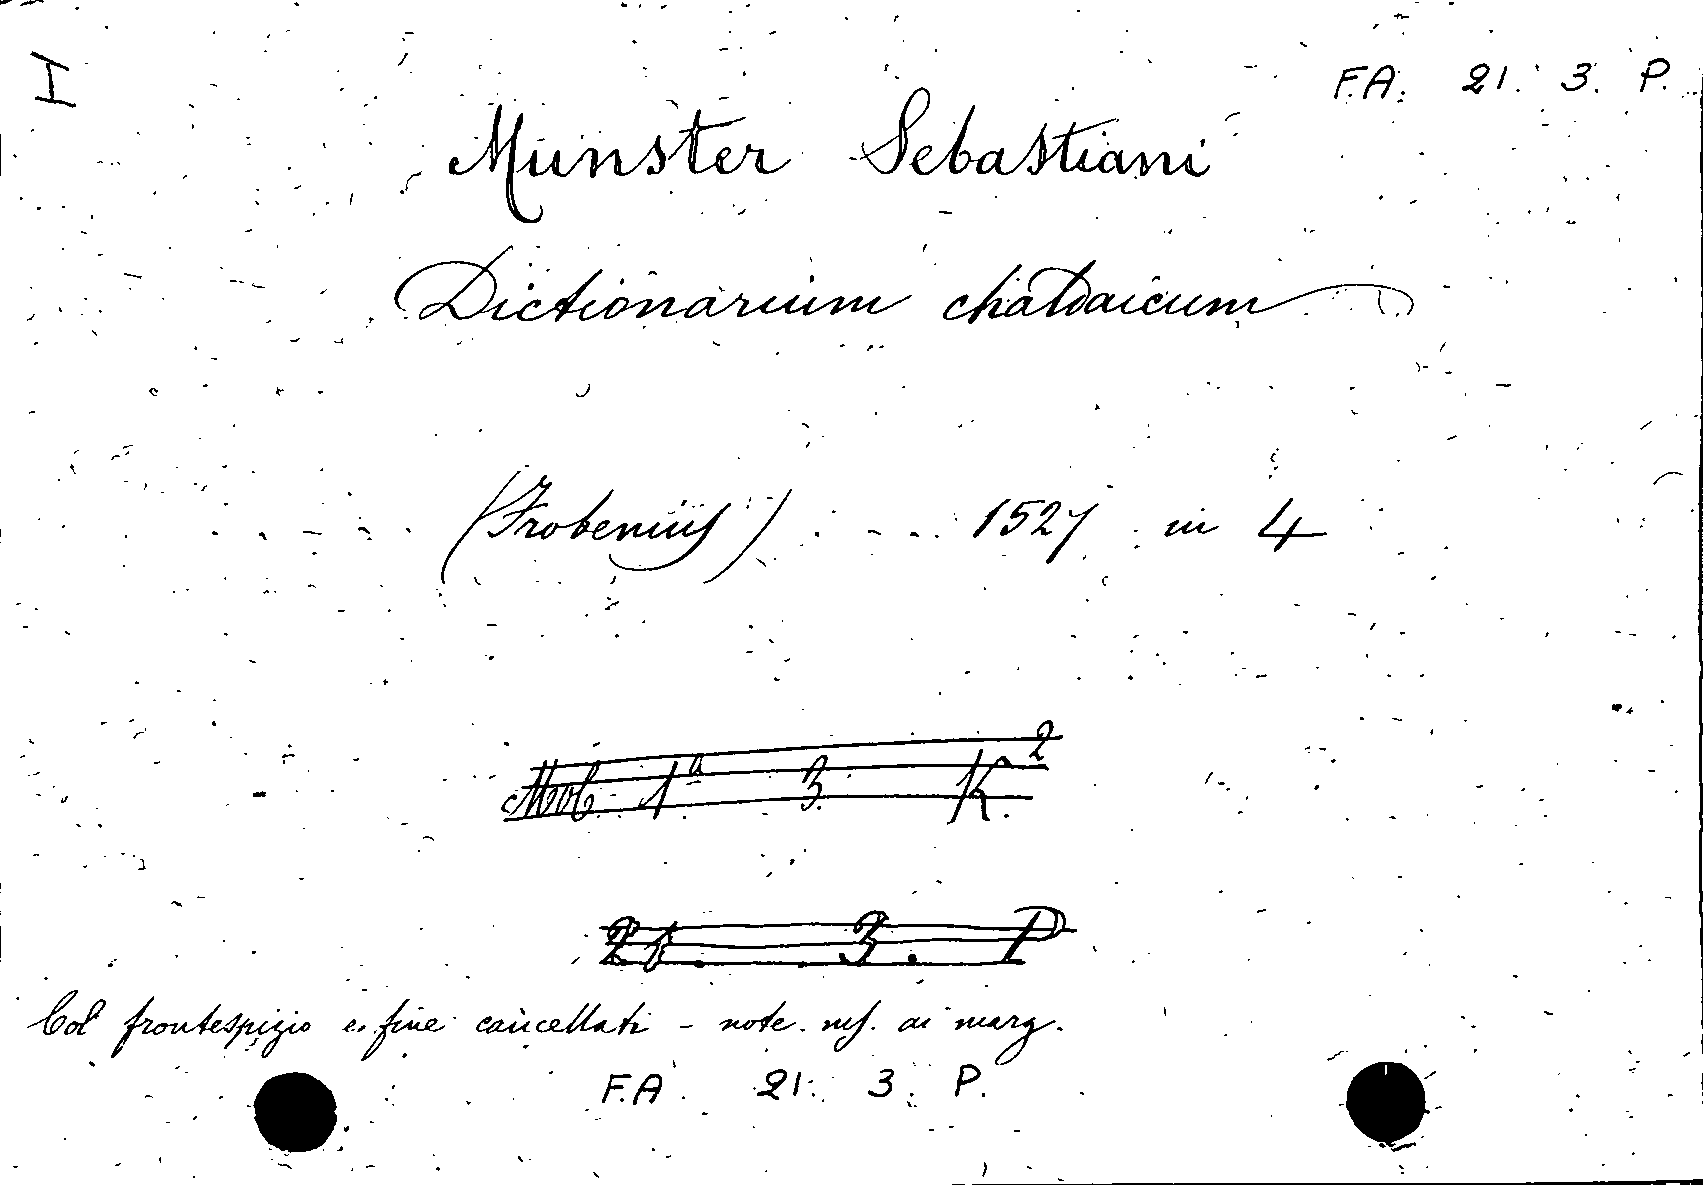 I
F.A. 21. 3. P.
Münster Sebastiani
Dictionarium chaldaicum
(Frobenius) . - . . 1527 in 4
Mob 1ª 3. K.²
21. 3. P
Col frontespizio e fine cancellati - note ms. ai marg.
F.A. 21. 3. P.